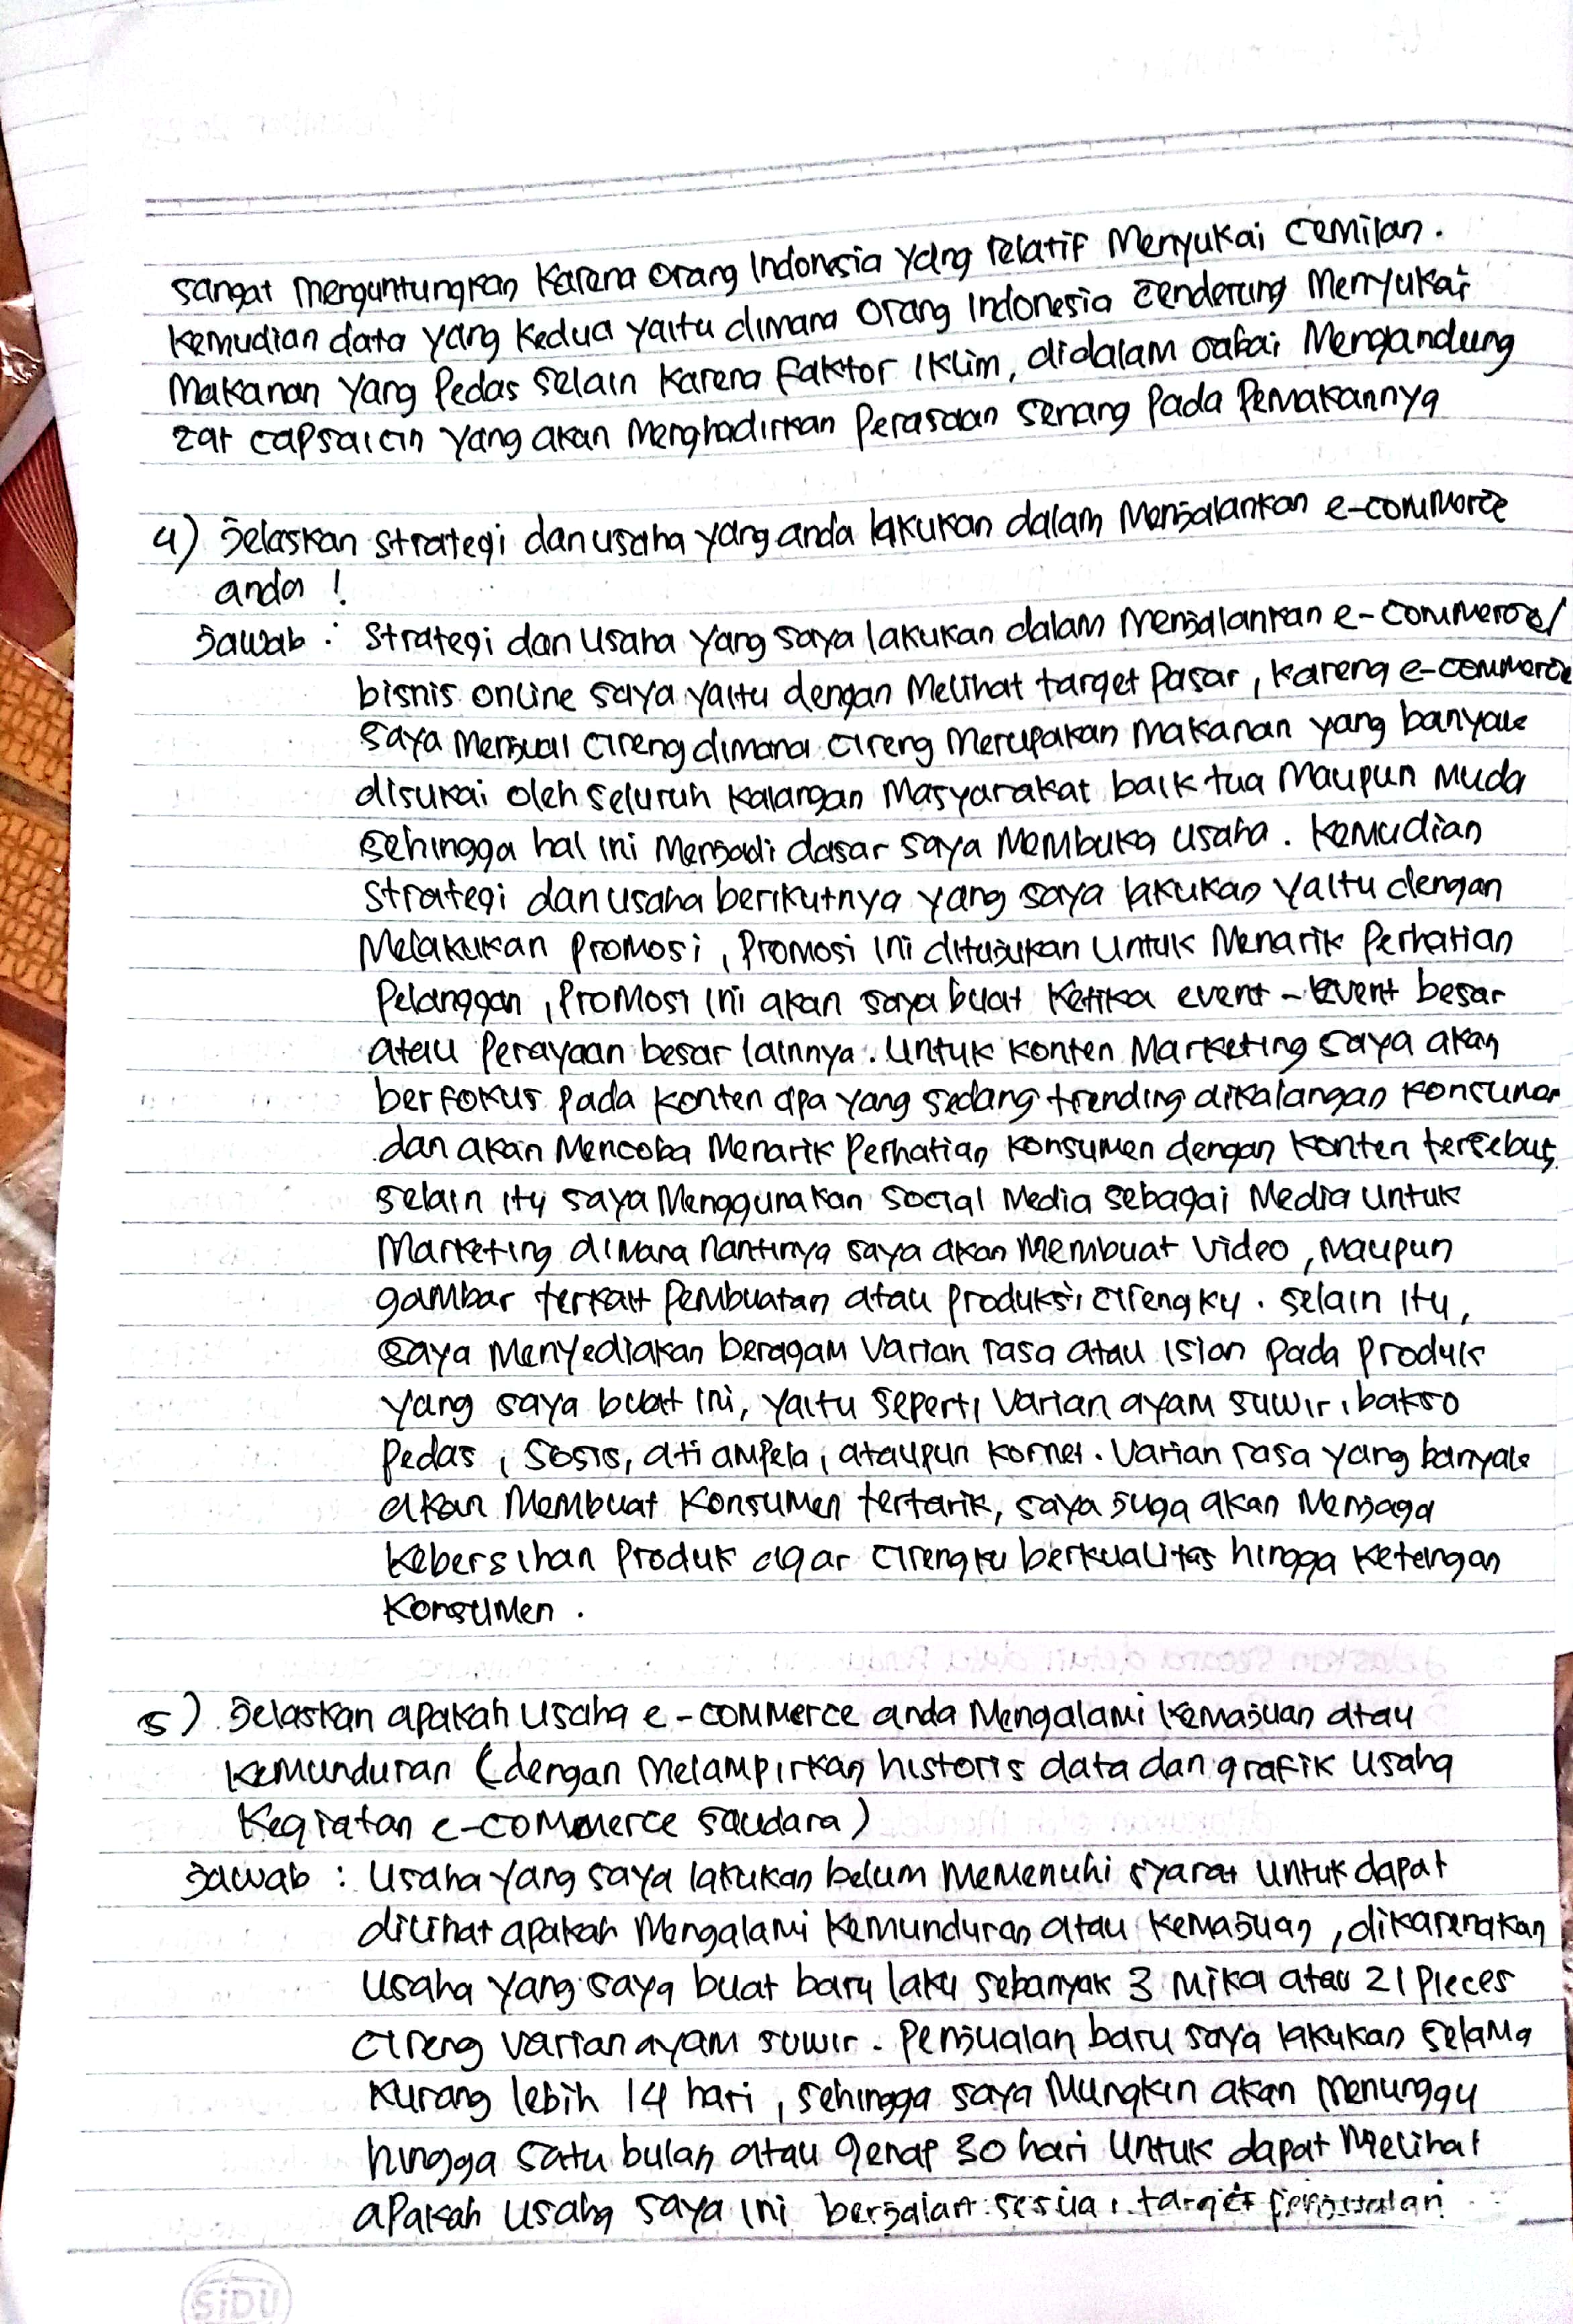 sangat menguntungkan karena orang Indonesia yang relatif menyukai cemilan.
kemudian data yang kedua yaitu dimana orang Indonesia cenderung menyukai
makanan yang pedas selain karena faktor iklim, didalam cabai mengandung
zat capsaicin yang akan menghadirkan perasaan senang pada pemakannya
4) Jelaskan strategi dan usaha yang anda lakukan dalam menjalankan e-commerce
anda !
Jawab : Strategi dan usaha yang saya lakukan dalam menjalankan e-commerce/
bisnis online saya yaitu dengan melihat target pasar, karena e-commerce
saya menjual cireng dimana cireng merupakan makanan yang banyak
disukai oleh seluruh kalangan masyarakat baik tua maupun muda
sehingga hal ini menjadi dasar saya membuka usaha. kemudian
strategi dan usaha berikutnya yang saya lakukan yaitu dengan
melakukan promosi, promosi ini ditujukan untuk menarik perhatian
pelanggan, promosi ini akan saya buat ketika event-event besar
atau perayaan besar lainnya. untuk konten marketing saya akan
berfokus pada konten apa yang sedang trending dikalangan konsumen
dan akan mencoba menarik perhatian konsumen dengan konten tersebut,
selain itu saya menggunakan social media sebagai media untuk
marketing dimana nantinya saya akan membuat video, maupun
gambar terkait pembuatan atau produksi cirengku. selain itu,
saya menyediakan beragam varian rasa atau isian pada produk
yang saya buat ini, yaitu seperti varian ayam suwir, bakso
pedas, sosis, ati ampela, ataupun kornet. varian rasa yang banyak
akan membuat konsumen tertarik, saya juga akan menjaga
kebersihan produk agar cirengku berkualitas hingga ketangan
konsumen.
5) Jelaskan apakah usaha e-commerce anda mengalami kemajuan atau
kemunduran (dengan melampirkan historis data dan grafik usaha
kegiatan e-commerce saudara)
Jawab : Usaha yang saya lakukan belum memenuhi syarat untuk dapat
dilihat apakah mengalami kemunduran atau kemajuan, dikarenakan
usaha yang saya buat baru laku sebanyak 3 mika atau 21 pieces
cireng varian ayam suwir. Penjualan baru saya lakukan selama
kurang lebih 14 hari, sehingga saya mungkin akan menunggu
hingga satu bulan atau genap 30 hari untuk dapat melihat
apakah usaha saya ini berjalan sesuai target penjualan
SiDU